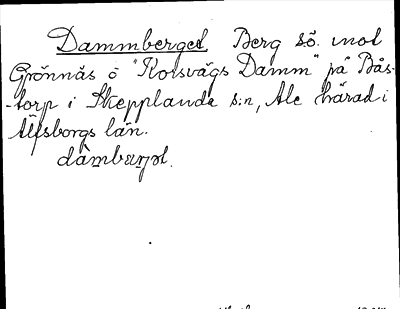 Dammberget. Berg sö. mot
Grönnås ö "Korsvägs Damm" på Bås-
-torp i Skepplanda s:n, Ale härad i
Älfsborgs län.